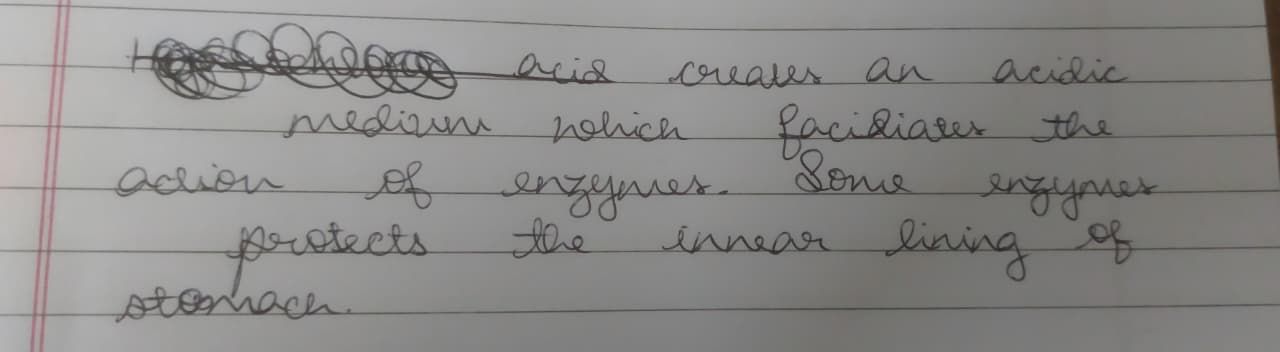 acid creates an acidic
medium which faciliates the
action of enzymes. Some enzymes
protects the innear lining of
stomach.